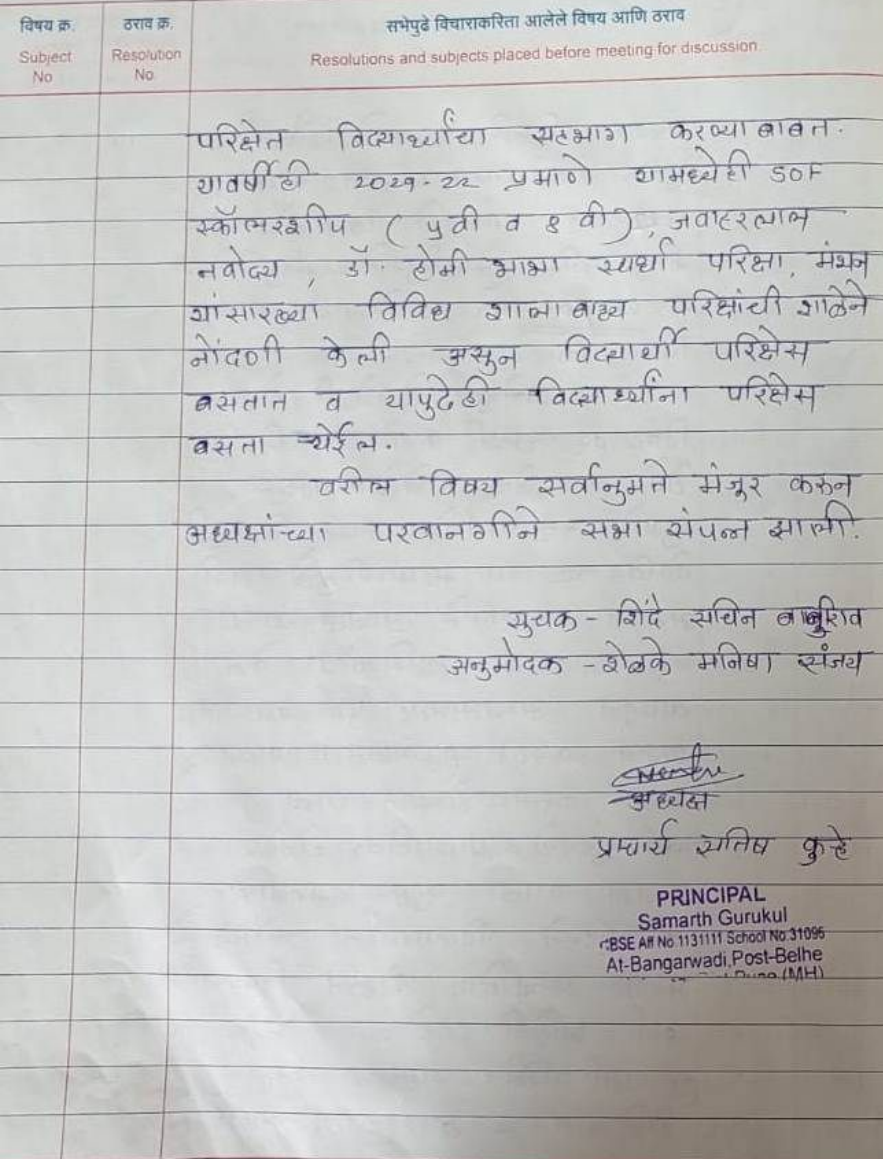 विषय क्र.
Subject
No
ठराव क्र.
Resolution
No
सभेपुढे विचाराकरिता आलेले विषय आणि ठराव
Resolutions and subjects placed before meeting for discussion
परिक्षेत विद्यार्थ्यांचा सहभाग करण्याबाबत.
यावर्षीही २०२१-२२ प्रमाणे यामध्येही SOF
स्कॉलरशीप ( ५ वी व ८ वी ), जवाहरलाल
नवोदय , डॉ. होमी भाभा स्पर्धा परिक्षा, मंथन
यांसारख्या विविध शाळा बाह्य परिक्षांची शाळेने
नोंदणी केली असुन विद्यार्थी परिक्षेस
बसतात व यापुढेही विद्यार्थ्यांना परिक्षेस
बसता येईल.
वरील विषय सर्वानुमते मंजूर करून
अध्यक्षांच्या परवानगीने सभा संपन्न झाली.
सुचक - शिंदे सचिन
अनुमोदक - शेळके मनिषा संजय
अध्यक्ष
प्राचार्य सतिष कु-हे
PRINCIPAL
Samarth Gurukul
CBSE Aff No.1131111 School No.31096
At-Bangarwadi,Post-Belhe
(MH)